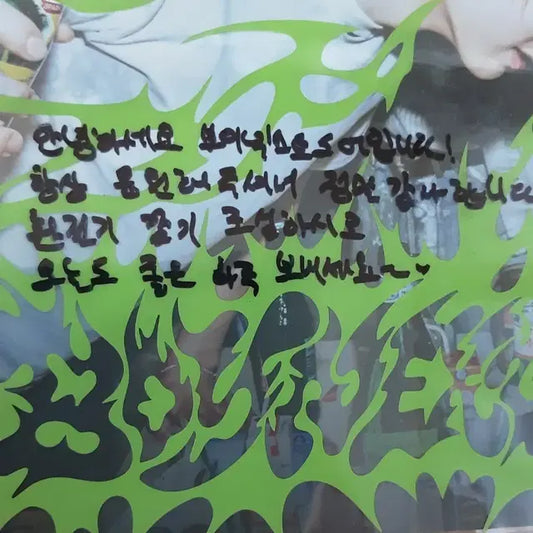 안녕하세요 보이넥스트도어입니다!
항상 응원해주셔서 정말 감사합니다
환절기 감기 조심하시고
오늘도 좋은 하루 보내세요~♡